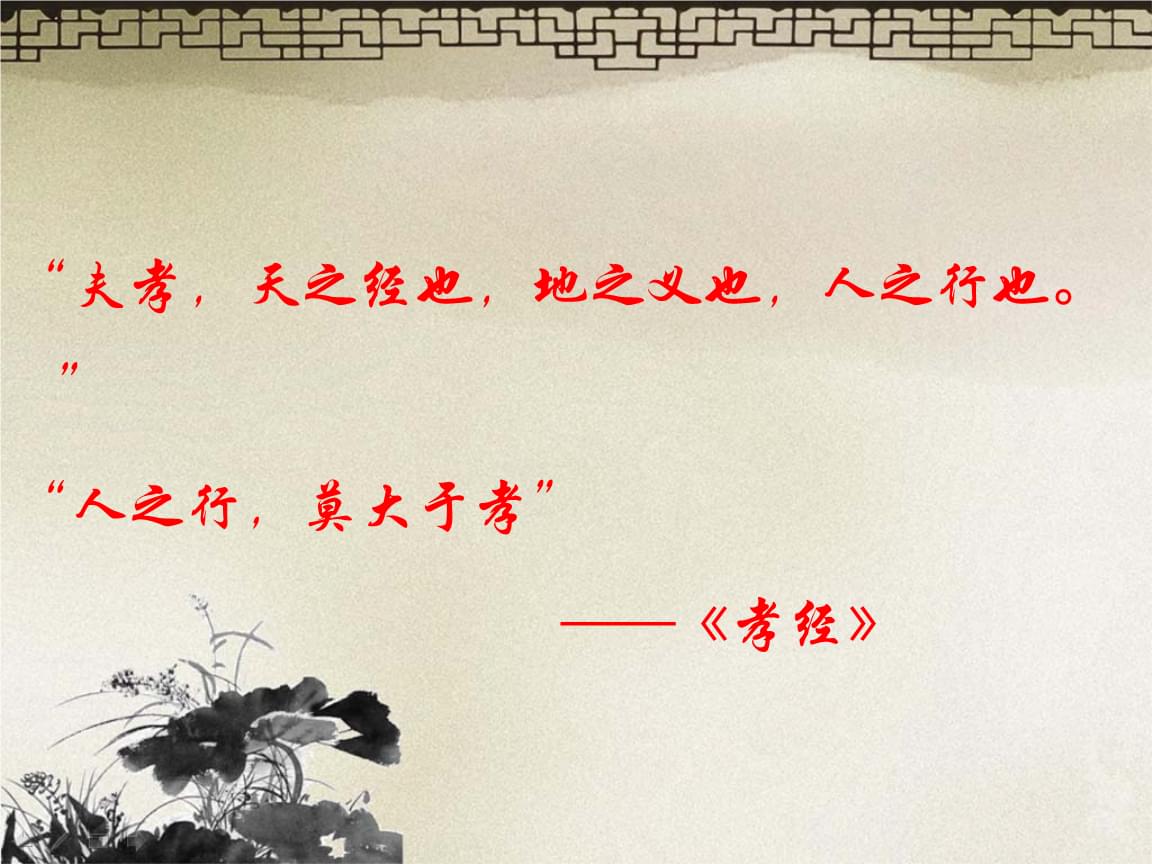 “夫孝，天之经也，地之义也，人之行也。
”
“人之行，莫大于孝”
——《孝经》